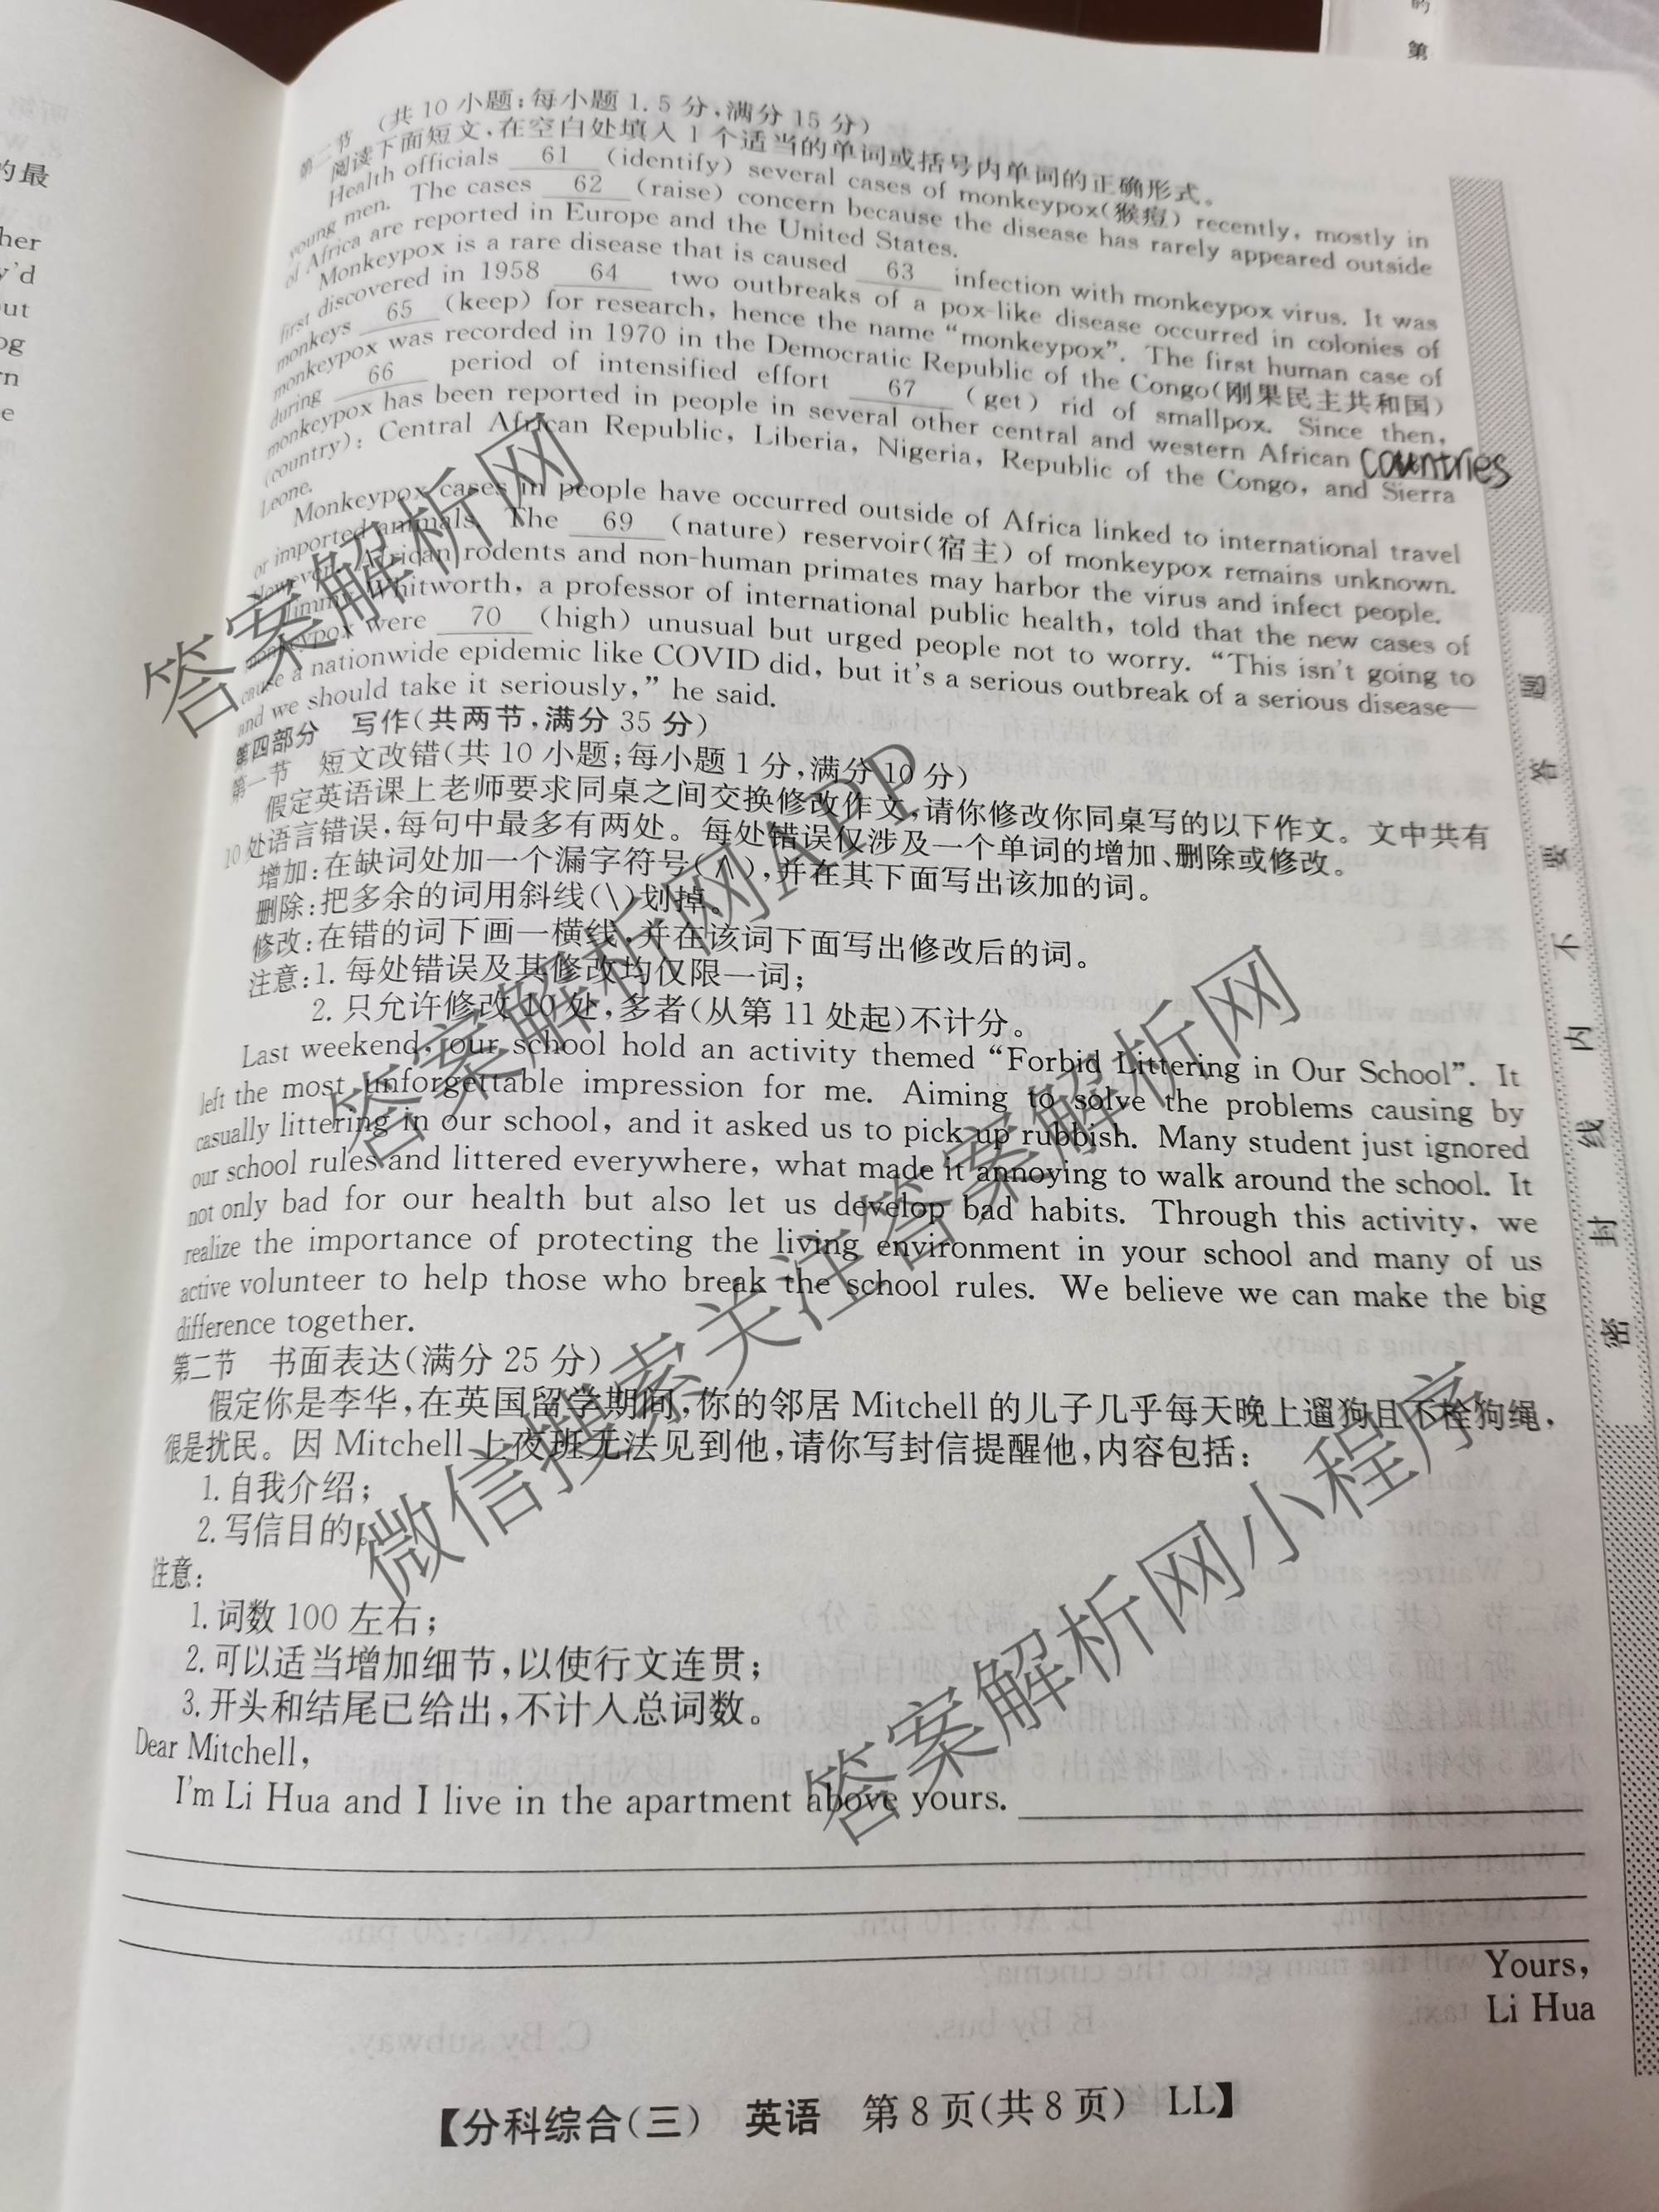 的
第
的最
her
y'd
out
og
rn
e
第二节 (共 10 小题;每小题 1.5 分,满分 15 分)
阅读下面短文,在空白处填入 1 个适当的单词或括号内单词的正确形式。
Health officials 61 (identify) several cases of monkeypox(猴痘) recently, mostly in
young men. The cases 62 (raise) concern because the disease has rarely appeared outside
of Africa are reported in Europe and the United States.
Monkeypox is a rare disease that is caused 63 infection with monkeypox virus. It was
first discovered in 1958 64 two outbreaks of a pox-like disease occurred in colonies of
monkeys 65 (keep) for research, hence the name “monkeypox”. The first human case of
monkeypox was recorded in 1970 in the Democratic Republic of the Congo(刚果民主共和国)
during 66 period of intensified effort 67 (get) rid of smallpox. Since then,
monkeypox has been reported in people in several other central and western African countries
(country): Central African Republic, Liberia, Nigeria, Republic of the Congo, and Sierra
Leone.
Monkeypox cases in people have occurred outside of Africa linked to international travel
or imported animals. The 69 (nature) reservoir(宿主) of monkeypox remains unknown.
However, African rodents and non-human primates may harbor the virus and infect people.
Jimmy Whitworth, a professor of international public health, told that the new cases of
monkeypox were 70 (high) unusual but urged people not to worry. “This isn't going to
cause a nationwide epidemic like COVID did, but it's a serious outbreak of a serious disease—
and we should take it seriously,” he said.
第四部分 写作(共两节,满分 35 分)
第一节 短文改错(共 10 小题;每小题 1 分,满分 10 分)
假定英语课上老师要求同桌之间交换修改作文,请你修改你同桌写的以下作文。文中共有
10 处语言错误,每句中最多有两处。每处错误仅涉及一个单词的增加、删除或修改。
增加:在缺词处加一个漏字符号(∧),并在其下面写出该加的词。
删除:把多余的词用斜线(\)划掉。
修改:在错的词下画一横线,并在该词下面写出修改后的词。
注意:1. 每处错误及其修改均仅限一词;
2. 只允许修改 10 处,多者(从第 11 处起)不计分。
Last weekend, our school hold an activity themed “Forbid Littering in Our School”. It
left the most unforgettable impression for me. Aiming to solve the problems causing by
casually littering in our school, and it asked us to pick up rubbish. Many student just ignored
our school rules and littered everywhere, what made it annoying to walk around the school. It
not only bad for our health but also let us develop bad habits. Through this activity, we
realize the importance of protecting the living environment in your school and many of us
active volunteer to help those who break the school rules. We believe we can make the big
difference together.
第二节 书面表达(满分 25 分)
假定你是李华,在英国留学期间,你的邻居 Mitchell 的儿子几乎每天晚上遛狗且不栓狗绳,
很是扰民。因 Mitchell 上夜班无法见到他,请你写封信提醒他,内容包括:
1. 自我介绍;
2. 写信目的。
注意:
1. 词数 100 左右;
2. 可以适当增加细节,以使行文连贯;
3. 开头和结尾已给出,不计入总词数。
Dear Mitchell,
I'm Li Hua and I live in the apartment above yours.
Yours,
Li Hua
【分科综合(三) 英语 第 8 页(共 8 页) LL】
密 封 线 内 不 要 答 题
答案解析网
答案解析网APP
微信搜索关注答案解析网
答案解析网小程序